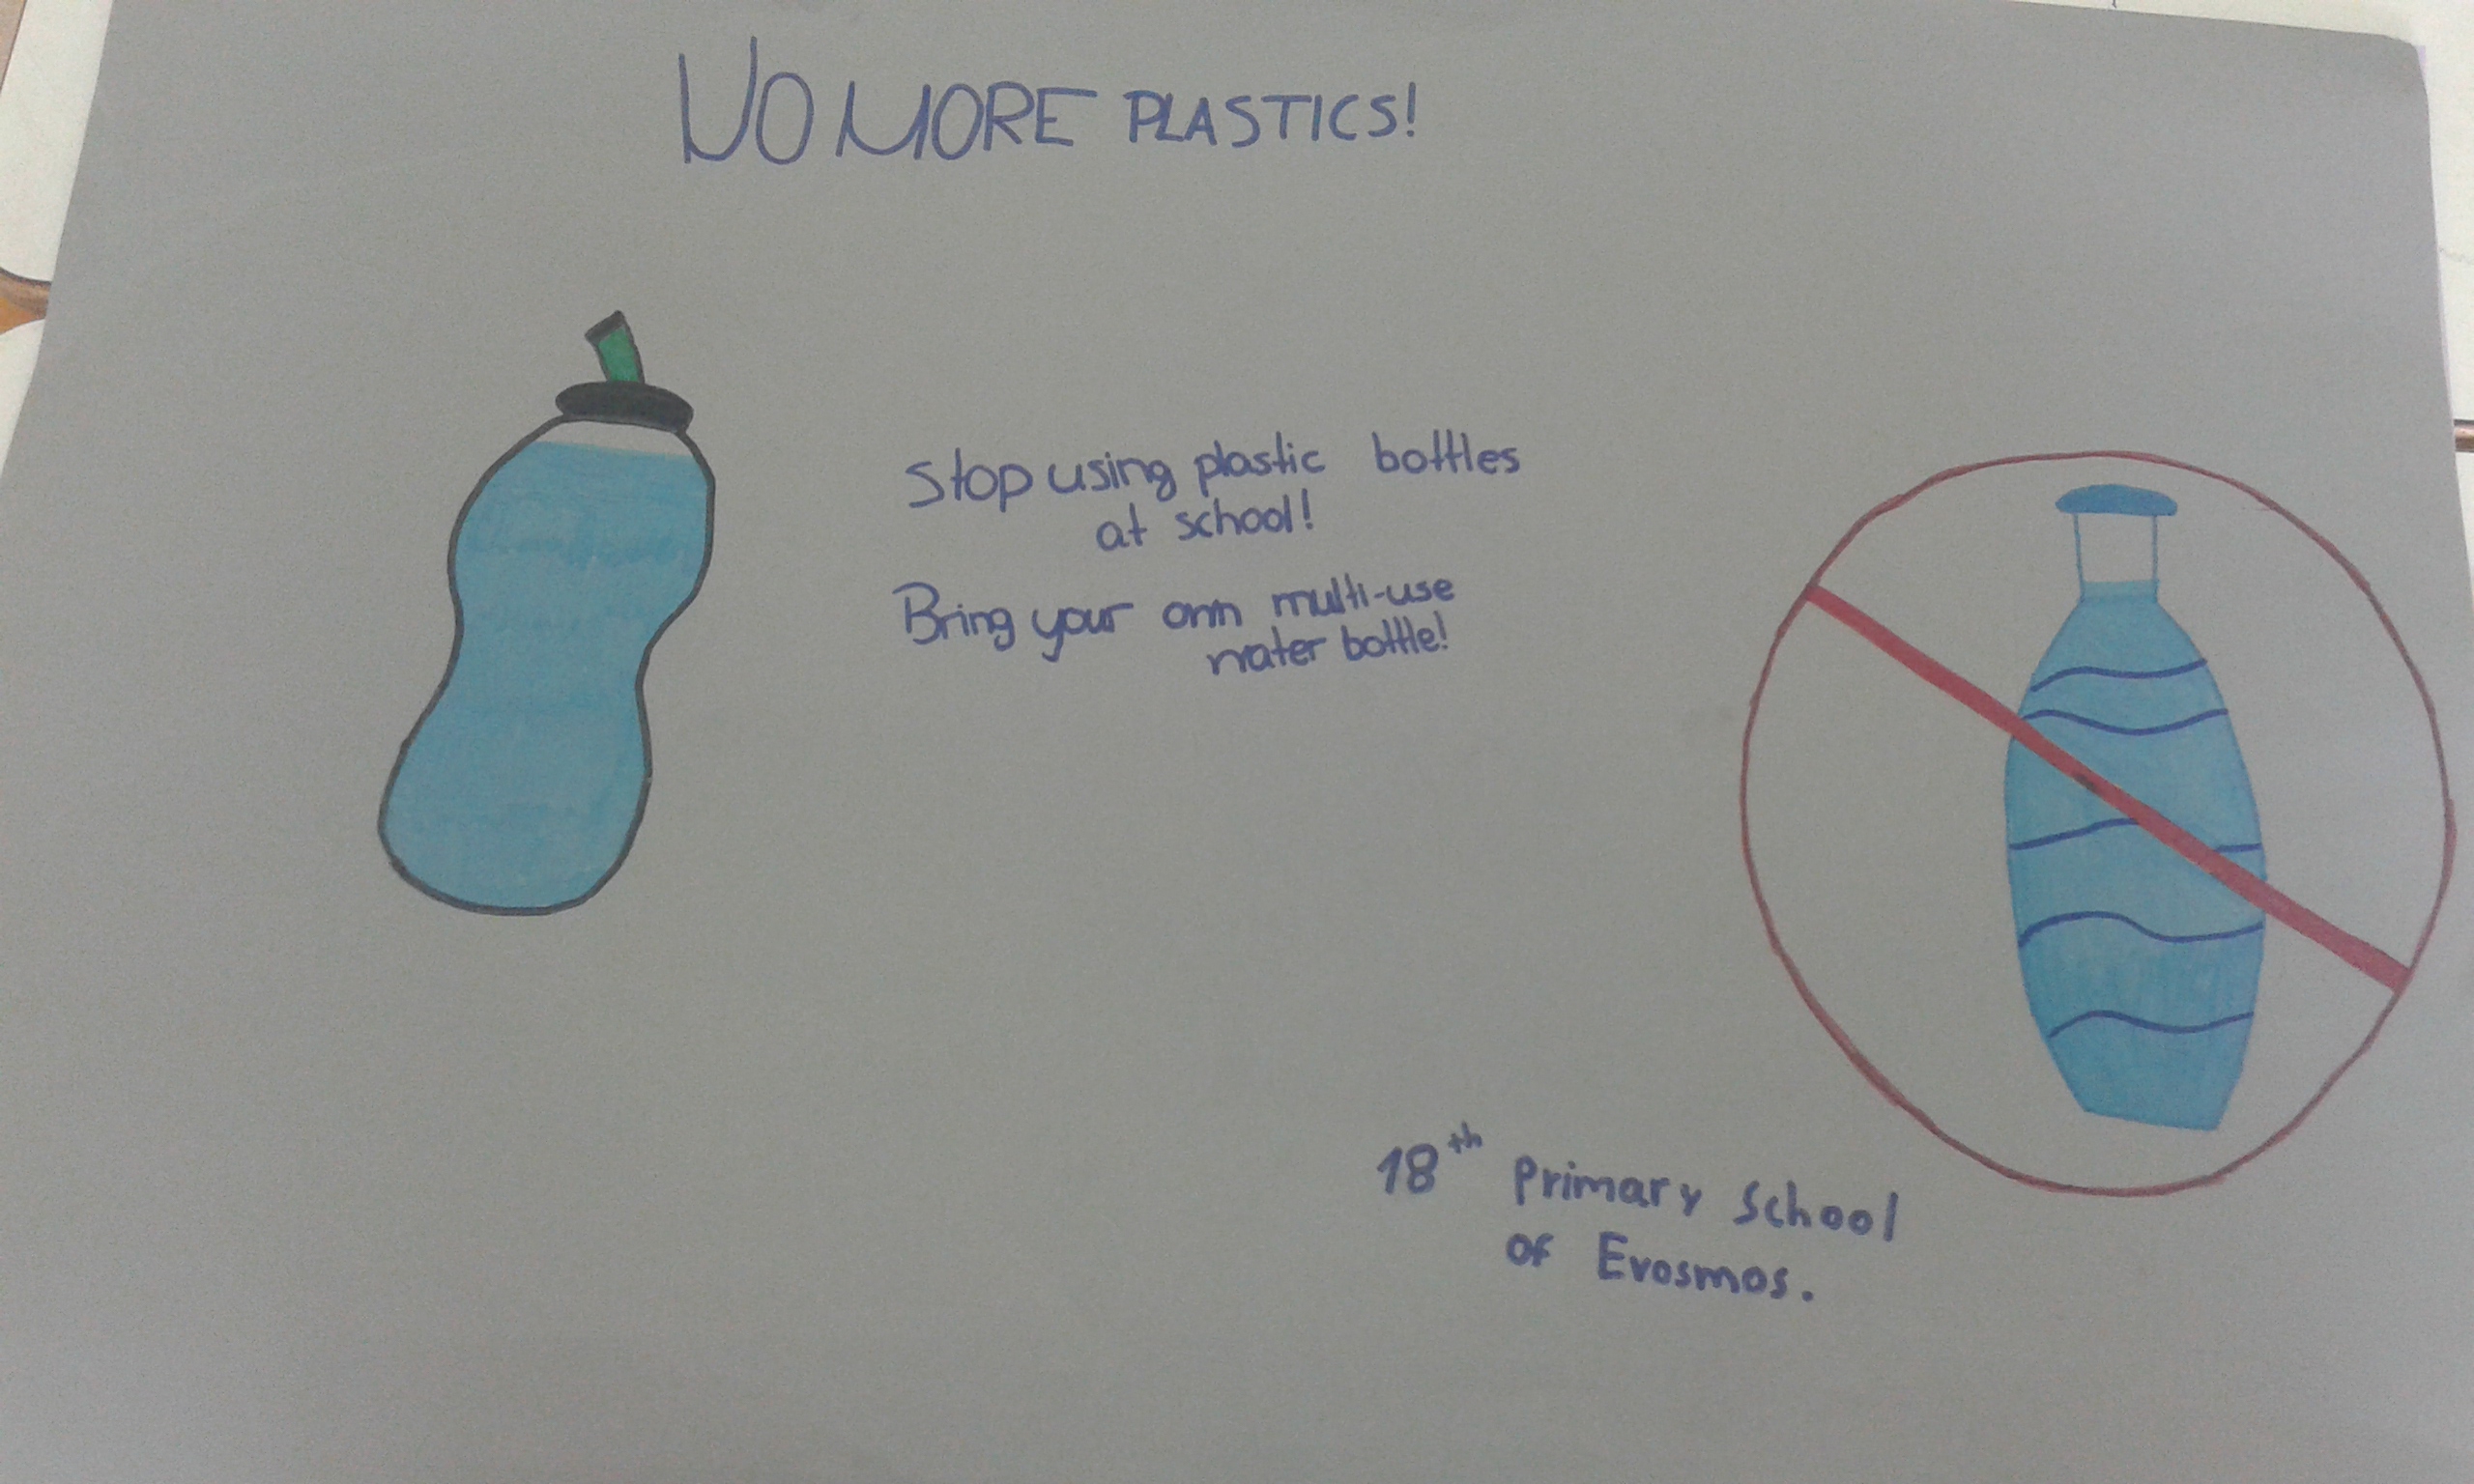 NO MORE PLASTICS!
Stop using plastic bottles
at school!
Bring your own multi-use
water bottle!
18th Primary School
of Evosmos.